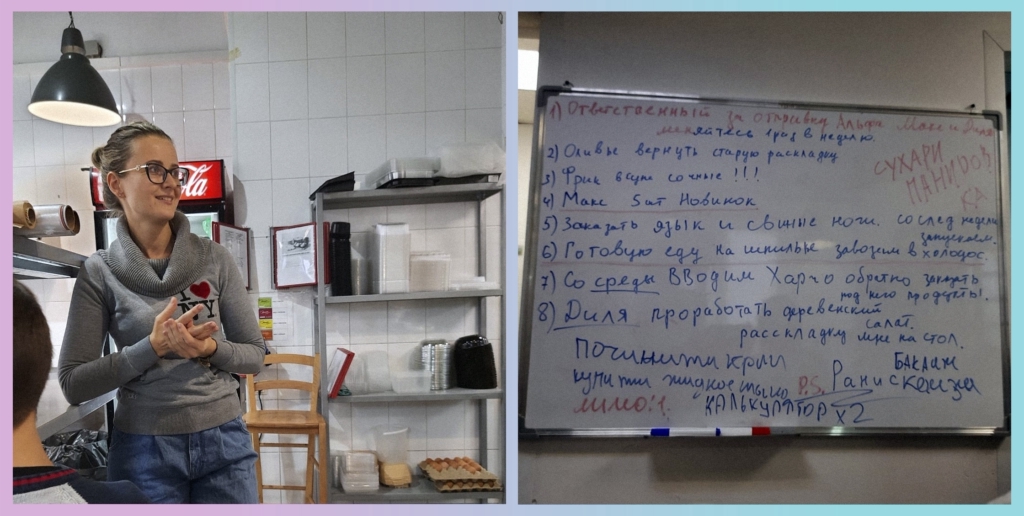 Cola
I ♥
NY
1) Ответственный за отправку Альфа Макс и Диля
меняйтесь 1 раз в неделю.
2) Оливье вернуть старую раскладку
3) Фриш сочные !!!
4) Макс 5 шт Новинок
5) Заказать язык и свинные ноги. со след недели
запускаем.
6) Готовую еду на шпильке завозим в холодос.
7) Со среды ВВодим Харчо обратно закупить
под него продукты.
8) Диля проработать деревенский
салат.
расскладку мне на стол.
СУХАРИ
ПАНИРОВ
Починити кран
купити жидкое мыло
P.S.
КАЛЬКУЛЯТОР х2
Баклаж